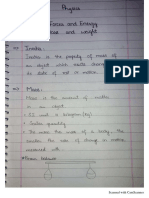 Physics
Forces and Energy
Mass and weight
=> Inertia :
Inertia is the property of mass of
an object which resists change
its state of rest or motion.
=> Mass :
Mass is the amount of matter
in an object
SI unit is kilogram (kg)
Scalar quantity
The more the mass of a body, the
smaller the rate of change in motion
Beam Balance
Scanned with CamScanner